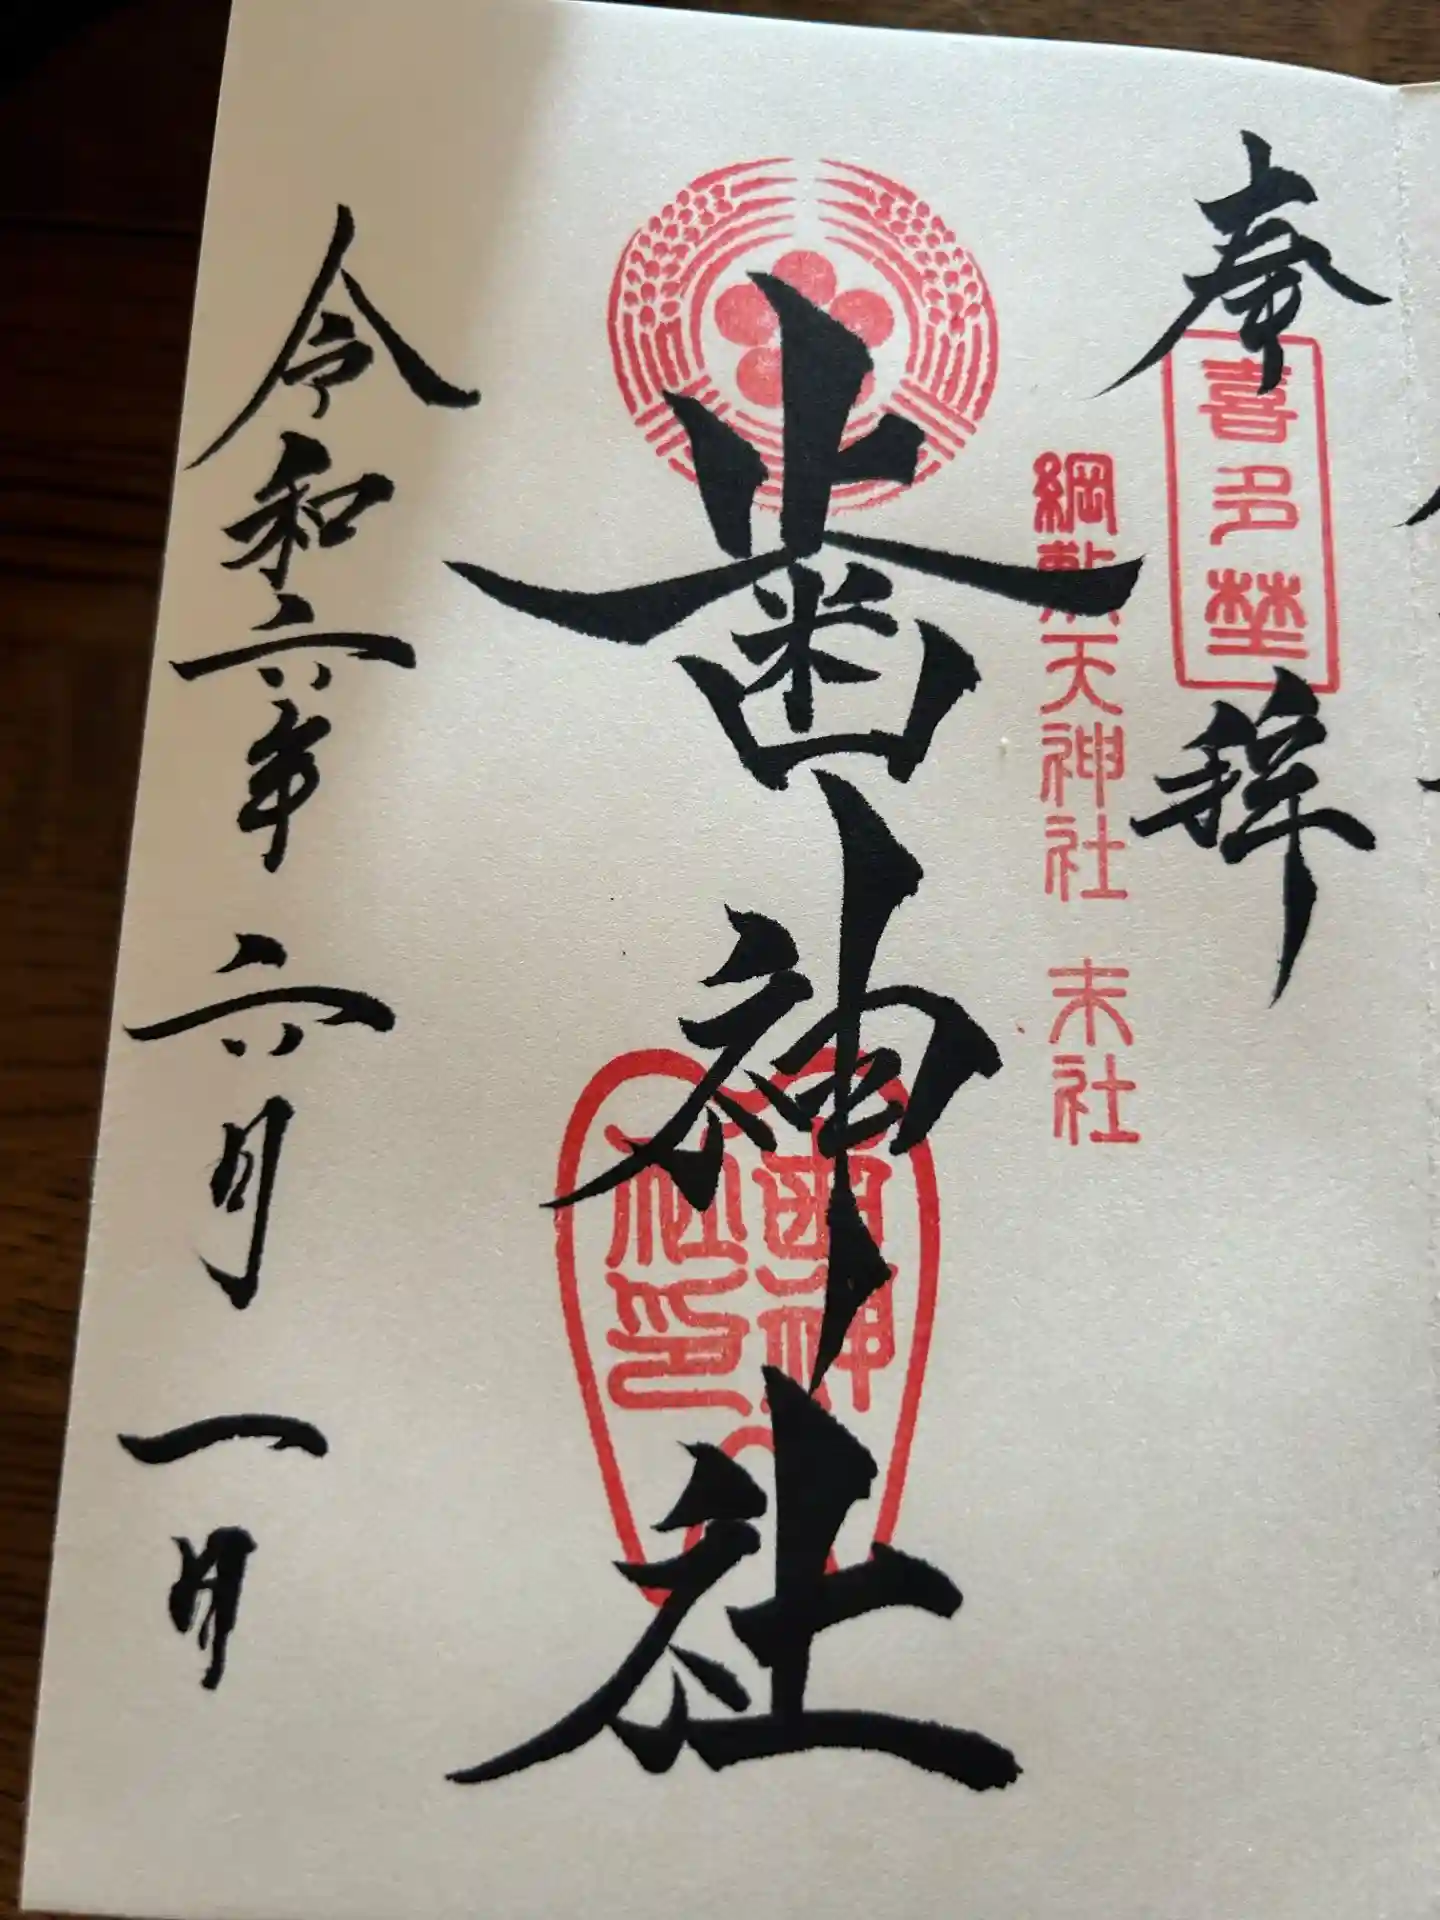 奉拝
喜多埜
綱敷天神社 末社
歯神社
歯神社印
令和六年 六月 一日